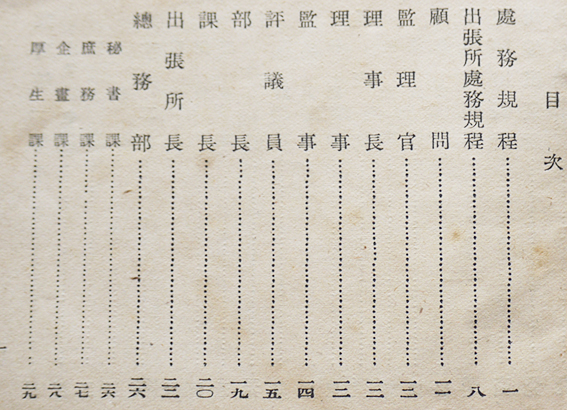 目次
處務規程 一
出張所處務規程 八
顧問 一一
監理官 一二
理事長 一二
理事 一二
監事 一四
評議員 一五
部長 一九
課長 二〇
出張所長 二三
總務部 二六
秘書課 二六
庶務課 二七
企畫課 二八
厚生課 二九